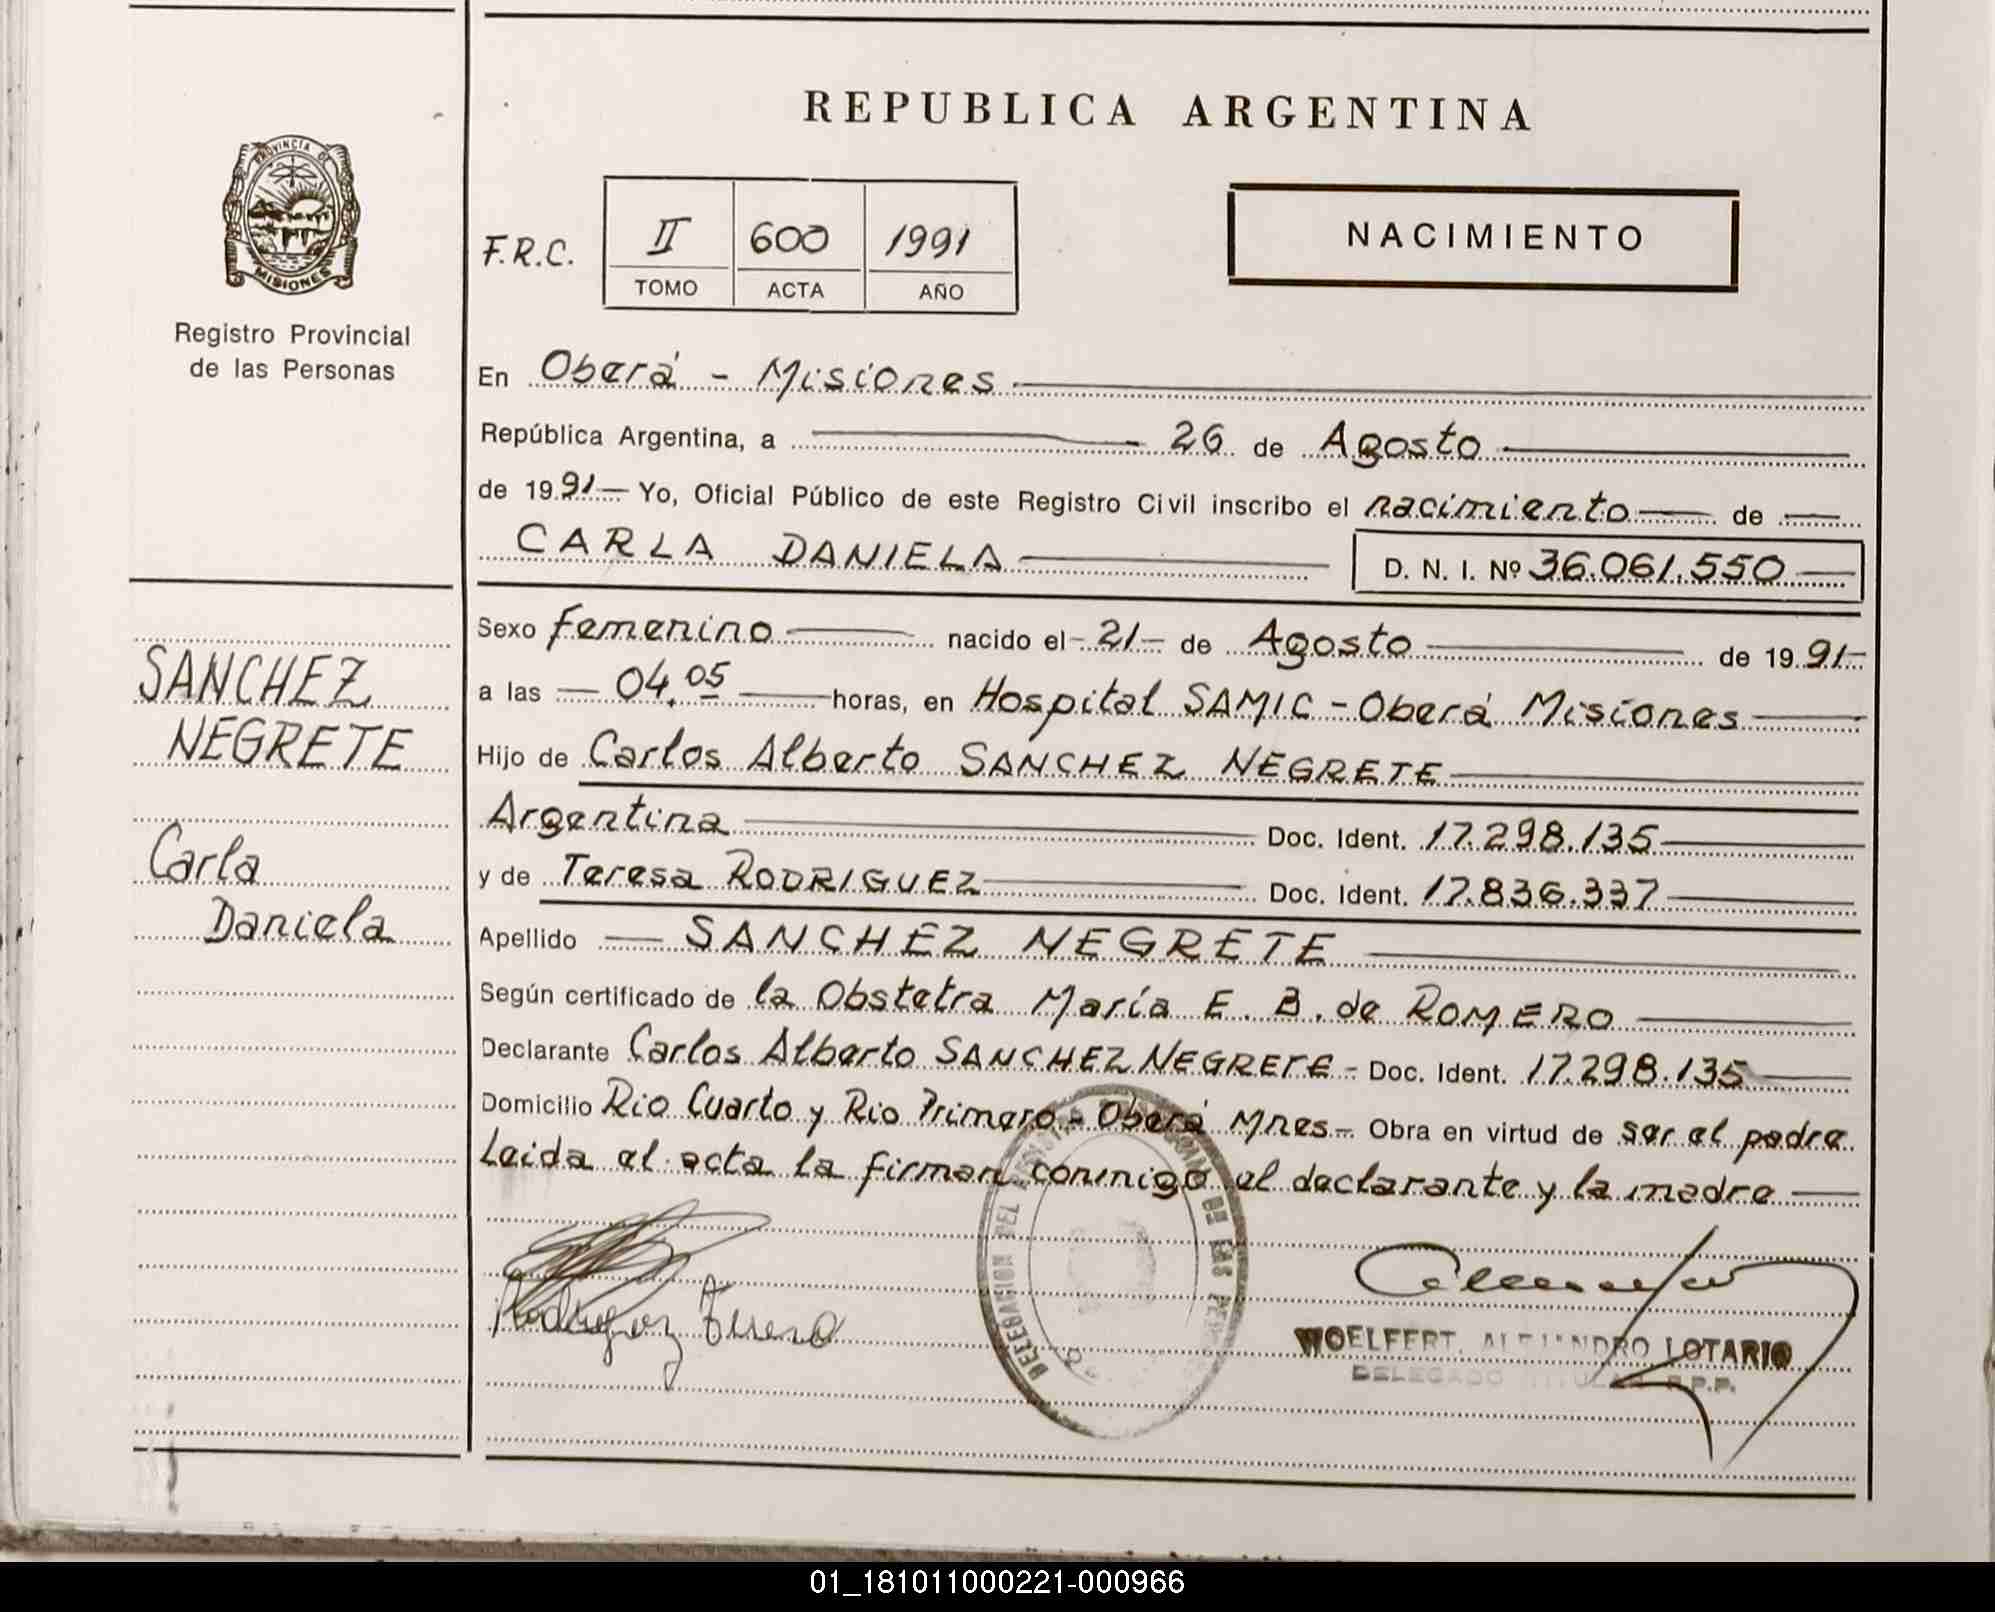 REPUBLICA ARGENTINA
PROVINCIA DE
MISIONES
Registro Provincial
de las Personas
F.R.C.
II 600 1991
TOMO ACTA AÑO
NACIMIENTO
En Oberá - Misiones
República Argentina, a 26 de Agosto
de 1991 Yo, Oficial Público de este Registro Civil inscribo el nacimiento de
CARLA DANIELA D. N. I. Nº 36.061.550
Sexo Femenino nacido el 21 de Agosto de 1991
a las 04.05 horas, en Hospital SAMIC - Oberá Misiones
Hijo de Carlos Alberto SANCHEZ NEGRETE
Argentina Doc. Ident. 17.298.135
y de Teresa RODRIGUEZ Doc. Ident. 17.836.337
Apellido SANCHEZ NEGRETE
Según certificado de la Obstetra María E. B. de ROMERO
Declarante Carlos Alberto SANCHEZ NEGRETE - Doc. Ident. 17.298.135
Domicilio Rio Cuarto y Rio Primero - Oberá Mnes - Obra en virtud de ser el padre
Leida el acta la firman conmigo el declarante y la madre
SANCHEZ
NEGRETE
Carla
Daniela
DELEGACION DEL DE LAS
WOELFERT, ALEJANDRO LOTARIO
DELEGADO TITULAR R.P.P.
01_181011000221-000966